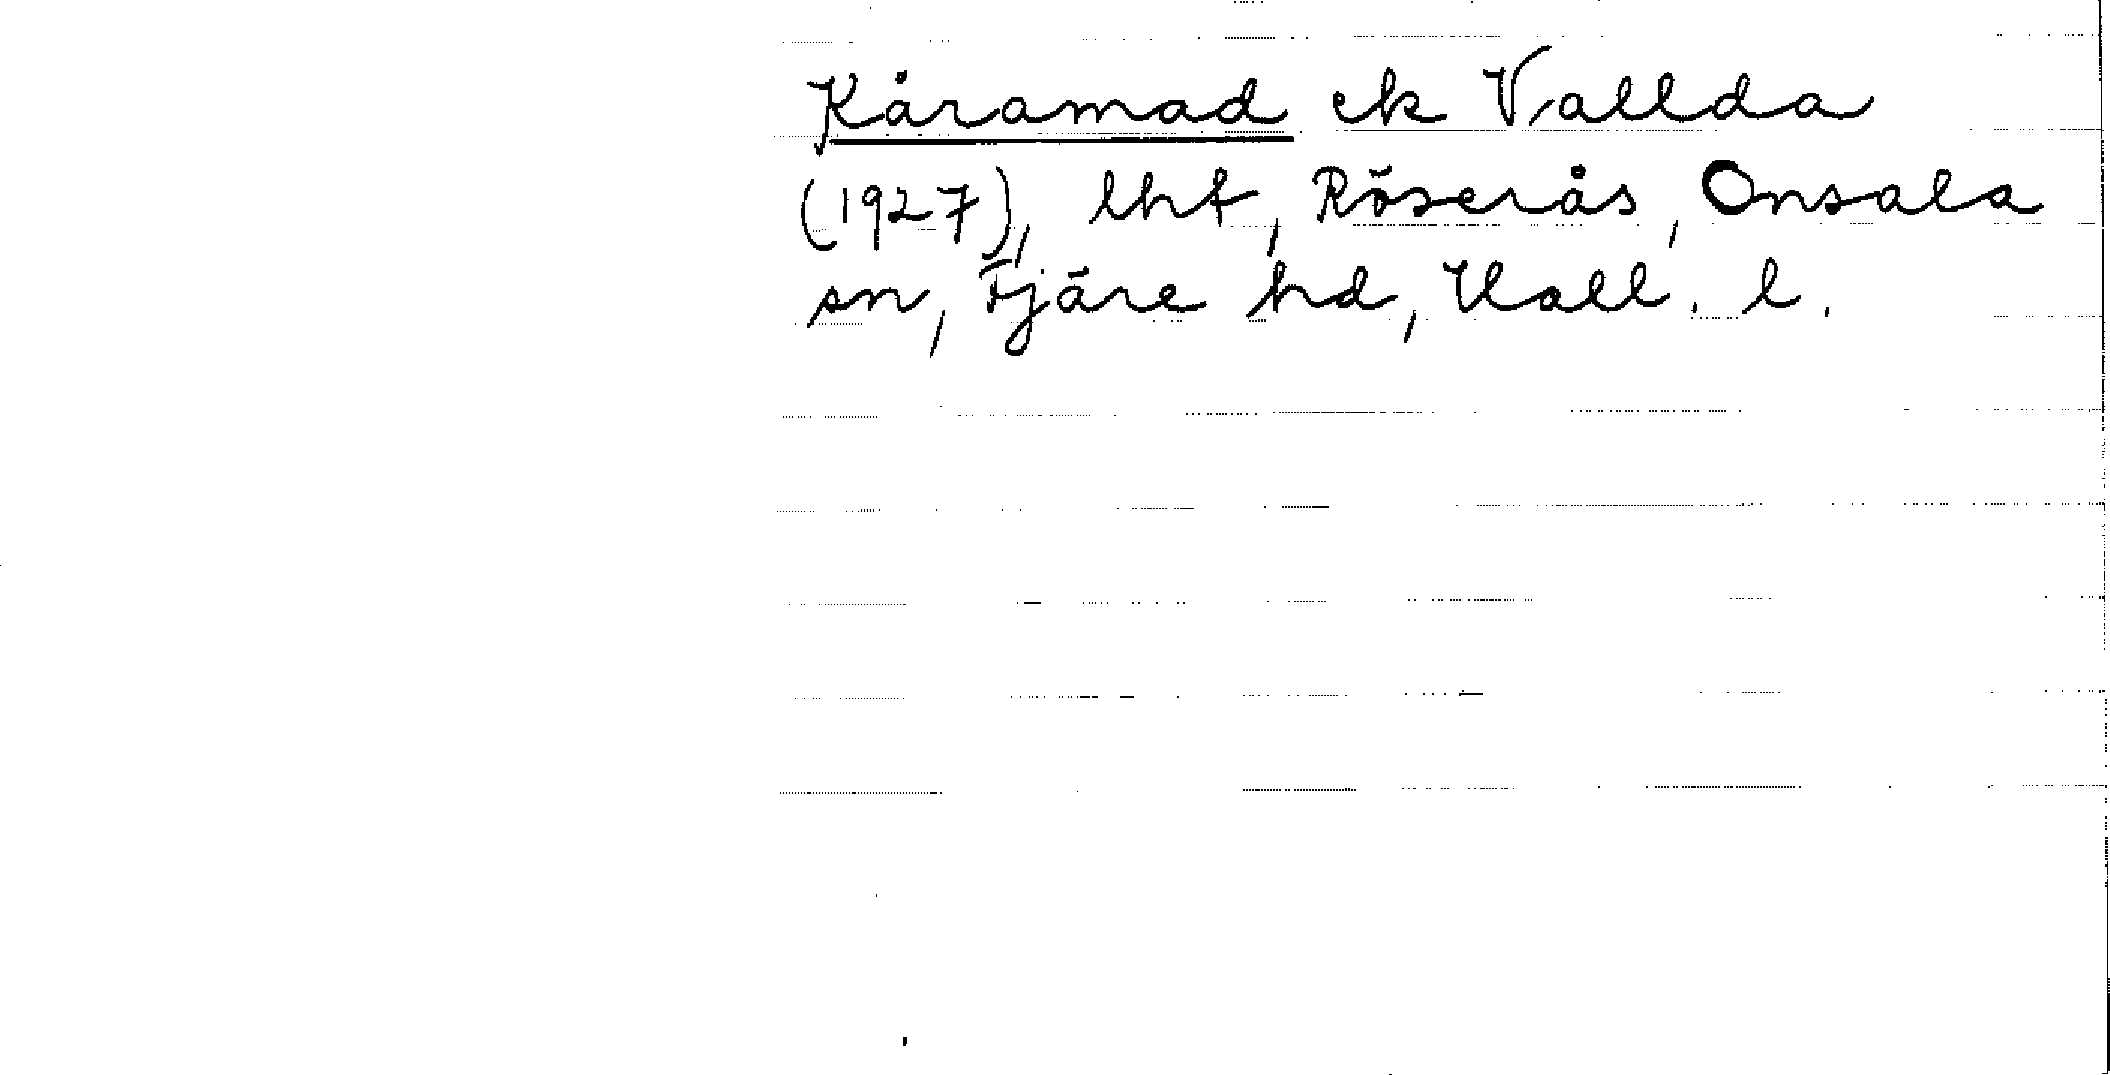 Kåramad ek Vallda
(1927), lht, Röserås, Onsala
sn, Fjäre hd, Hall. l.